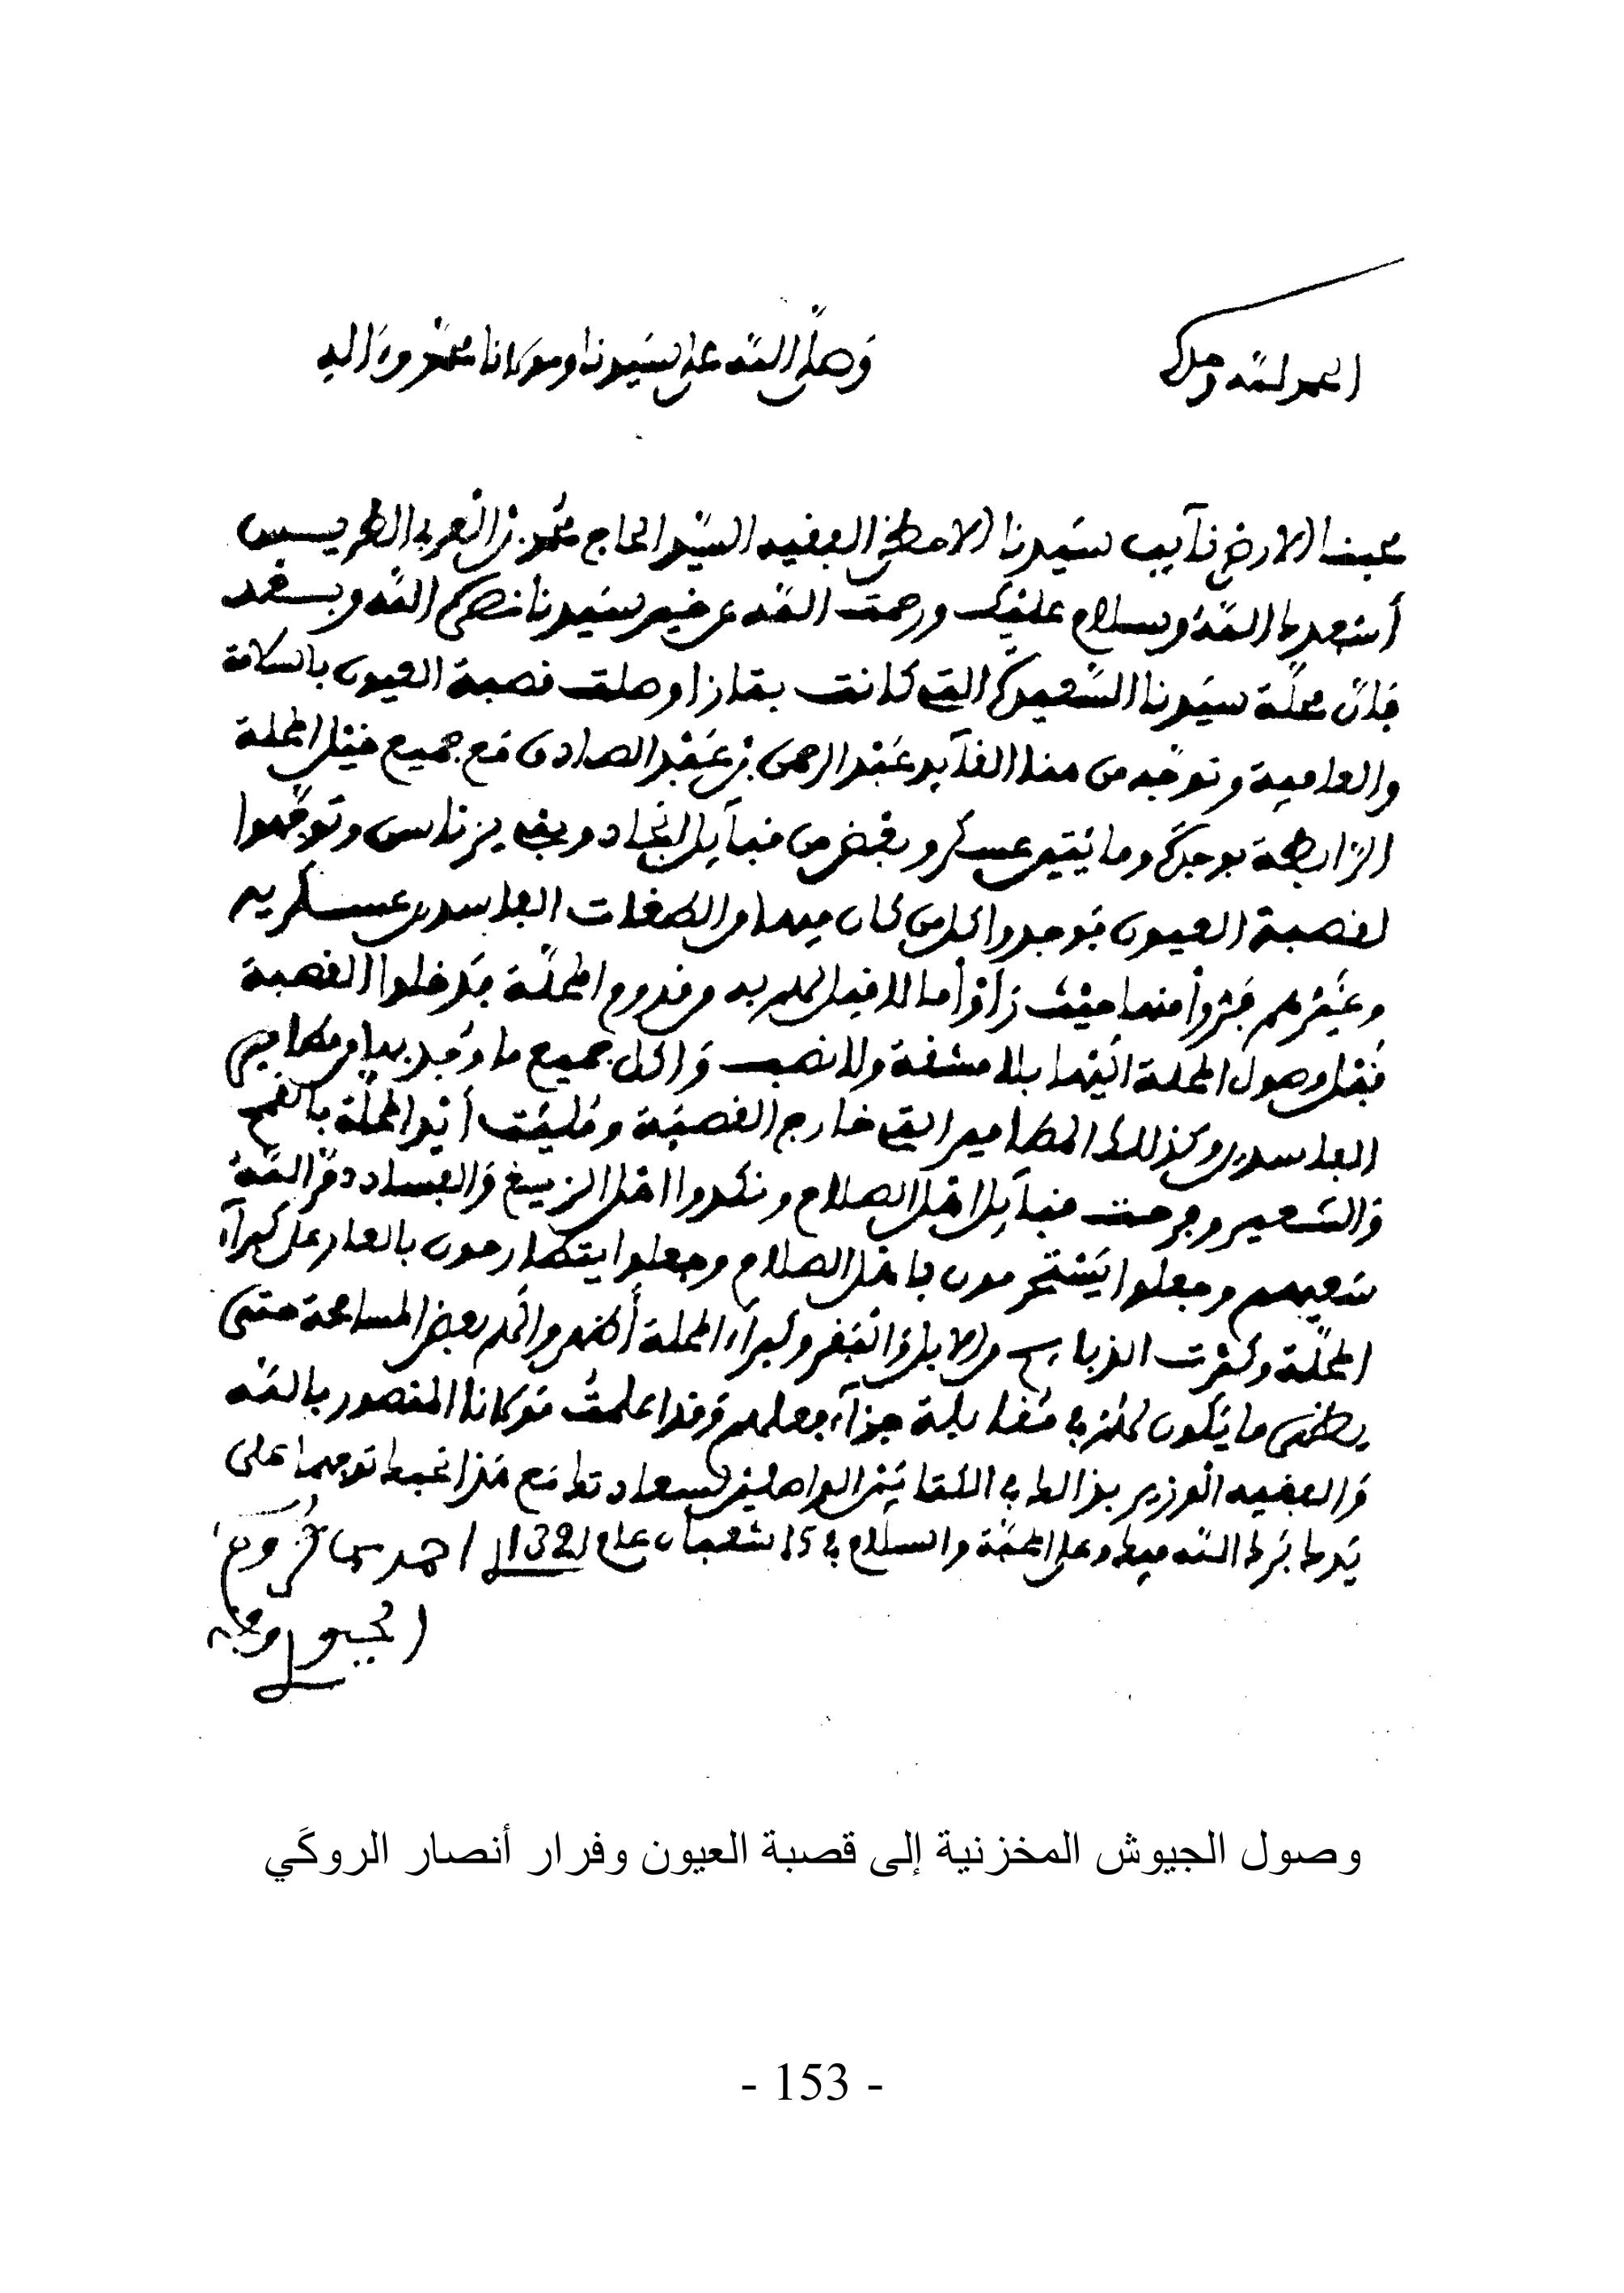 الحمد لله وحده
وصلى الله على سيدنا ومولانا محمد وءاله
محبنا الارضى نآيب سيدنا الاحظى الفقيه السيد الحاج محمد بن العربي الطريس
أسعدك الله وسلام عليك ورحمت الله عن خير سيدنا نصره الله وبعد
فان محلة سيدنا السعيدة التي كانت بتازا وصلت قصبة العيون بالسلامة
والعافية وتوجه من هنا القآيد عبد الرحمن بن عبد الصادق مع جميع خيل المحلة
الرابطة بوجدة ومائتين عسكر وبعض من قبآيل انجاد وبني يزناسن وتوجهوا
لقصبة العيون فوجدوا كل من كان فيها من الطغات الفاسدين عسكريه
وغيرهم فروا منها حيث رأوا ما لا قبل لهم به من قدوم المحلة فدخلوا القصبة
قبل وصول المحلة اليها بلا مشقة ولا نصب واكل جميع ما وجد بها من مطامير
الفاسدين وكذلك المطامير التي خارج القصبة ومليت أيد المحلة بالقمح
والشعير وفرحت قبآيل اهل الصلاح ونكدوا اهل الزيغ والفساد دمر الله
سعيهم وجعلوا يستحرمون باهل الصلاح وجعلوا يتطارحون بالعار على كبرآء
المحلة وكثرت الذبايح من الابل والبقر وكبرآء المحلة أظهروا لهم بعض المسامحة حتى
يظهر ما يكون لهم في مقابلة جزآء فعلهم وقد اعلمت مولانا المنصور بالله
والفقيه الوزير بذالك في الكتابين الواصلين لسعادتك مع هذا نحبك توجهما على
يدك بارك الله فيك وعلى المحبة والسلام في 15 شعبان عام 1321 احمد بن كروم
الجبوري وفقه
وصول الجيوش المخزنية إلى قصبة العيون وفرار أنصار الروكَي
- 153 -